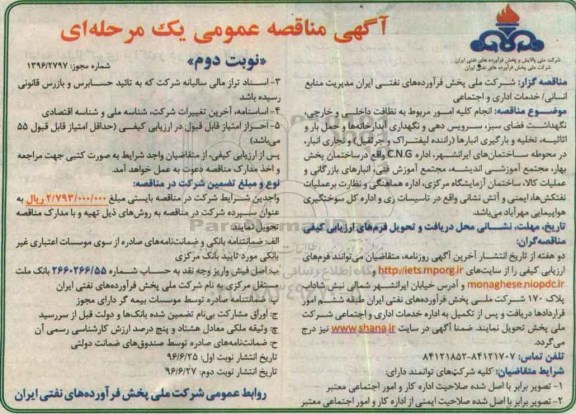 آگهی مناقصه عمومی یک مرحله‌ای
«نوبت دوم»
شماره مجوز: ۱۳۹۶/۲۷۹۷
شرکت ملی پالایش و پخش فرآورده های نفتی ایران
شرکت ملی پخش فرآورده های نفتی ایران
مناقصه گزار: شرکت ملی پخش فرآورده‌های نفتی ایران مدیریت منابع
انسانی/ خدمات اداری و اجتماعی
موضوع مناقصه: انجام کلیه امور مربوط به نظافت داخلی و خارجی،
نگهداشت فضای سبز، سرویس دهی و نگهداری آبدارخانه‌ها و حمل بار و
اثاثیه، تخلیه و بارگیری انبارها (راننده لیفتراک وجرثقیل) و نجاری انبار،
در محوطه ساختمان‌های ایرانشهر، اداره C.N.G واقع درساختمان پخش
بهار، مجتمع آموزشی اندیشه، مجتمع آموزش فنی، انبارهای بازرگانی و
عملیات کالا، ساختمان آزمایشگاه مرکزی، اداره هماهنگی و نظارت برعملیات
نفتکش‌ها، ایمنی و آتش نشانی واقع در تاسیسات ری و اداره کل سوختگیری
هواپیمایی مهرآباد می‌باشد.
تاریخ، مهلت، نشانی محل دریافت و تحویل فرم‌های ارزیابی کیفی
مناقصه‌گران:
دو هفته از تاریخ انتشار آخرین آگهی روزنامه، متقاضیان می‌توانند فرم‌های
ارزیابی کیفی را از سایت‌های http://iets.mporg.ir و
monaghese.niopdc.ir و آدرس خیابان ایرانشهر شمالی نبش شاداب
پلاک ۱۷۰ شرکت ملی پخش فرآورده‌های نفتی ایران طبقه ششم امور
قراردادها دریافت و پس از تکمیل به اداره خدمات اداری و اجتماعی شرکت
ملی پخش تحویل نمایند. ضمنا آگهی در سایت www.shana.ir نیز درج
می‌گردد.
تلفن تماس: ۸۴۱۲۱۷۰۷-۸۴۱۲۱۸۵۲
شرایط متقاضیان: کلیه شرکت‌های توانمند دارای:
۱- تصویر برابر با اصل شده صلاحیت اداره کار و امور اجتماعی معتبر
۲- تصویر برابر با اصل شده صلاحیت ایمنی از اداره کار و امور اجتماعی معتبر
۳- اسناد تراز مالی سالیانه شرکت که به تائید حسابرس و بازرس قانونی
رسیده باشد
۴- اساسنامه، آخرین تغییرات شرکت، شناسه ملی و شناسه اقتصادی
۵- احراز امتیاز قابل قبول در ارزیابی کیفی (حداقل امتیاز قابل قبول ۵۵
می‌باشد)
پس از ارزیابی کیفی، از متقاضیان واجد شرایط به صورت کتبی جهت مراجعه
و اخذ مدارک مناقصه دعوت به عمل خواهد آمد.
نوع و مبلغ تضمین شرکت در مناقصه:
واجدین شرایط شرکت در مناقصه بایستی مبلغ ۲/۷۹۳/۰۰۰/۰۰۰ ریال به
عنوان سپرده شرکت در مناقصه به روش‌های ذیل تهیه و با مدارک مناقصه
تحویل نمایند:
الف: ضمانتنامه بانکی و ضمانت‌نامه‌های صادره از سوی موسسات اعتباری غیر
بانکی مورد تایید بانک مرکزی
ب: اصل فیش واریز وجه نقد به حساب شماره ۲۶۶۰۲۶۶/۵۵ بانک ملت
مستقل مرکزی به نام شرکت ملی پخش فرآورده‌های نفتی ایران
پ: ضمانتنامه صادره توسط موسسات بیمه گر دارای مجوز
ج: اوراق مشارکت بی‌نام تضمین شده بانک‌ها و دولت قبل از سررسید
چ: وثیقه ملکی معادل هشتاد و پنج درصد ارزش کارشناسی رسمی آن
ح: ضمانت‌نامه‌های صادره توسط صندوق‌های ضمانت دولتی
تاریخ انتشار نوبت اول: ۹۶/۶/۲۵
تاریخ انتشار نوبت دوم: ۹۶/۶/۲۷
روابط عمومی شرکت ملی پخش فرآورده‌های نفتی ایران